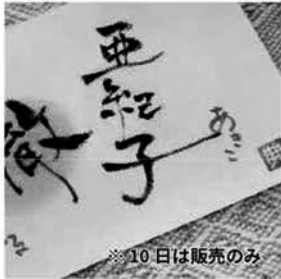 亜紀子
あきこ
※10日は販売のみ